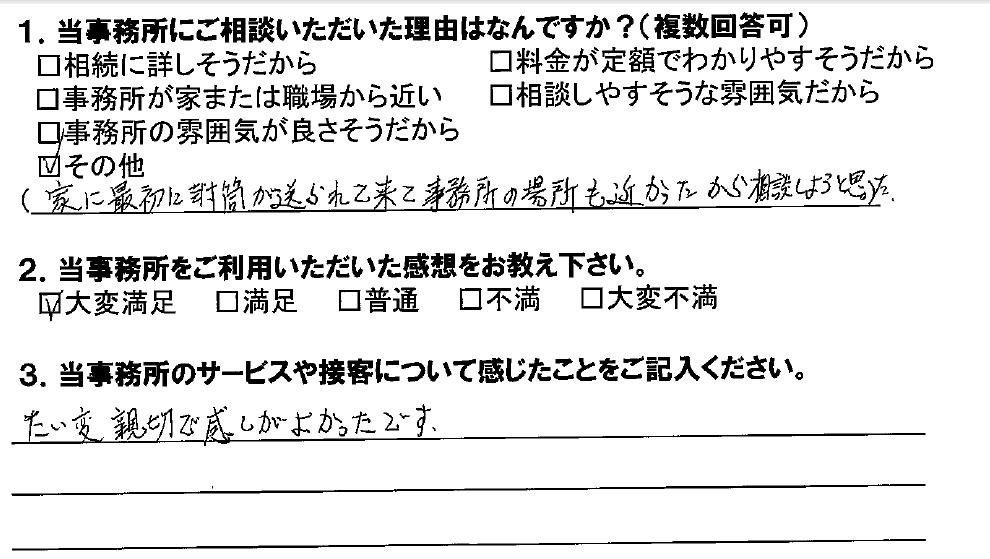 1. 当事務所にご相談いただいた理由はなんですか？(複数回答可)
□相続に詳しそうだから □料金が定額でわかりやすそうだから
□事務所が家または職場から近い □相談しやすそうな雰囲気だから
□事務所の雰囲気が良さそうだから
☑その他
(家に最初に封筒が送られて来て事務所の場所も近かったから相談しようと思った.
2. 当事務所をご利用いただいた感想をお教え下さい。
☑大変満足 □満足 □普通 □不満 □大変不満
3. 当事務所のサービスや接客について感じたことをご記入ください。
たい変親切で感じがよかったです.